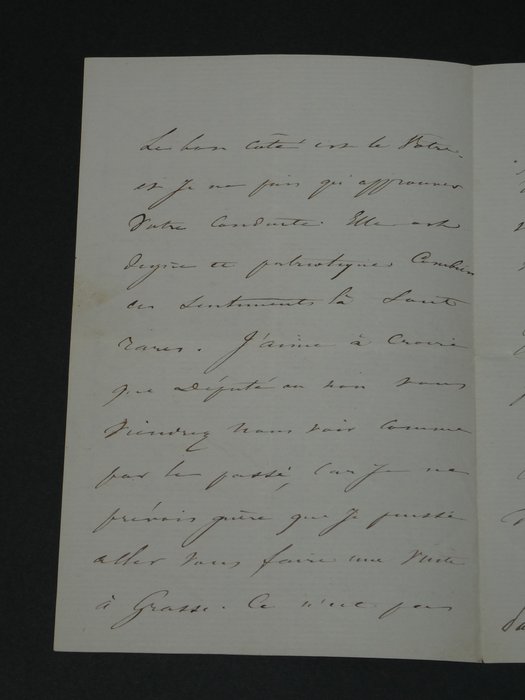 Le bon côté est le Vôtre.
et Je ne puis qu'approuver
Votre Conduite. Elle est
digne et patriotique Combien
ces Sentiments là Sont
rares. J'aime à Croire
que Député ou non Vous
Viendrez nous voir Comme
par le passé, Car Je ne
prévois guère que Je puisse
aller Vous faire une Visite
à Grasse. Ce n'est pas